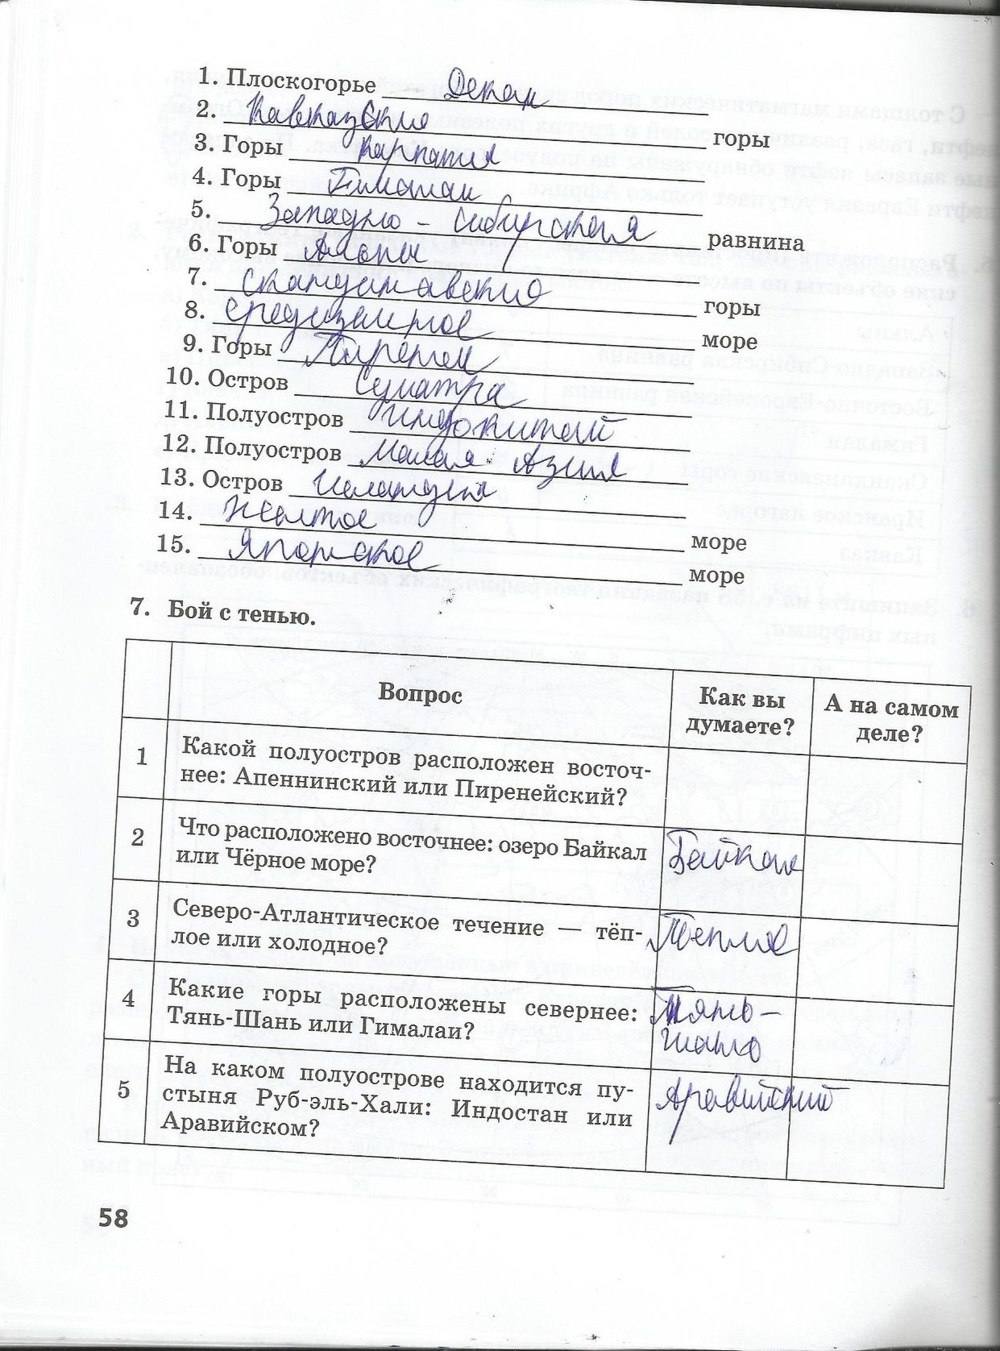 1. Плоскогорье Декан
2. Кавказские горы
3. Горы Карпаты
4. Горы Гималаи
5. Западно - Сибирская равнина
6. Горы Альпы
7. Скандинавские горы
8. Средиземное море
9. Горы Пиренеи
10. Остров Суматра
11. Полуостров Индокитай
12. Полуостров Малая Азия
13. Остров Исландия
14. Желтое море
15. Японское море
7. Бой с тенью.
Вопрос
Как вы
думаете?
А на самом
деле?
1
Какой полуостров расположен восточ-
нее: Апеннинский или Пиренейский?
2
Что расположено восточнее: озеро Байкал
или Чёрное море?
Байкал
3
Северо-Атлантическое течение — тёп-
лое или холодное?
Теплое
4
Какие горы расположены севернее:
Тянь-Шань или Гималаи?
Тянь-
Шань
5
На каком полуострове находится пу-
стыня Руб-эль-Хали: Индостан или
Аравийском?
Аравийский
58